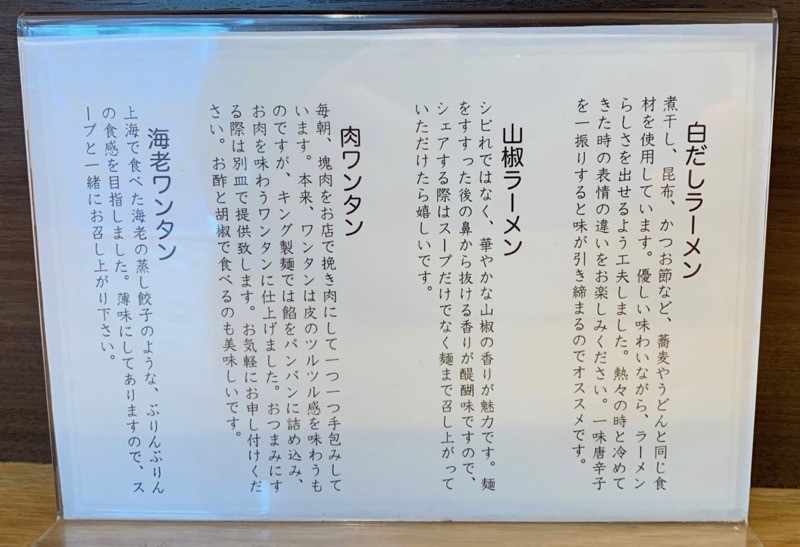 白だしラーメン
煮干し、昆布、かつお節など、蕎麦やうどんと同じ食
材を使用しています。優しい味わいながら、ラーメン
らしさを出せるよう工夫しました。熱々の時と冷めて
きた時の表情の違いをお楽しみください。一味唐辛子
を一振りすると味が引き締まるのでオススメです。
山椒ラーメン
シビれではなく、華やかな山椒の香りが魅力です。麺
をすすった後の鼻から抜ける香りが醍醐味ですので、
シェアする際はスープだけでなく麺まで召し上がって
いただけたら嬉しいです。
肉ワンタン
毎朝、塊肉をお店で挽き肉にして一つ一つ手包みして
います。本来、ワンタンは皮のツルツル感を味わうも
のですが、キング製麺では餡をパンパンに詰め込み、
お肉を味わうワンタンに仕上げました。おつまみにす
る際は別皿で提供致します。お気軽にお申し付けくだ
さい。お酢と胡椒で食べるのも美味しいです。
海老ワンタン
上海で食べた海老の蒸し餃子のような、ぷりんぷりん
の食感を目指しました。薄味にしてありますので、ス
ープと一緒にお召し上がり下さい。